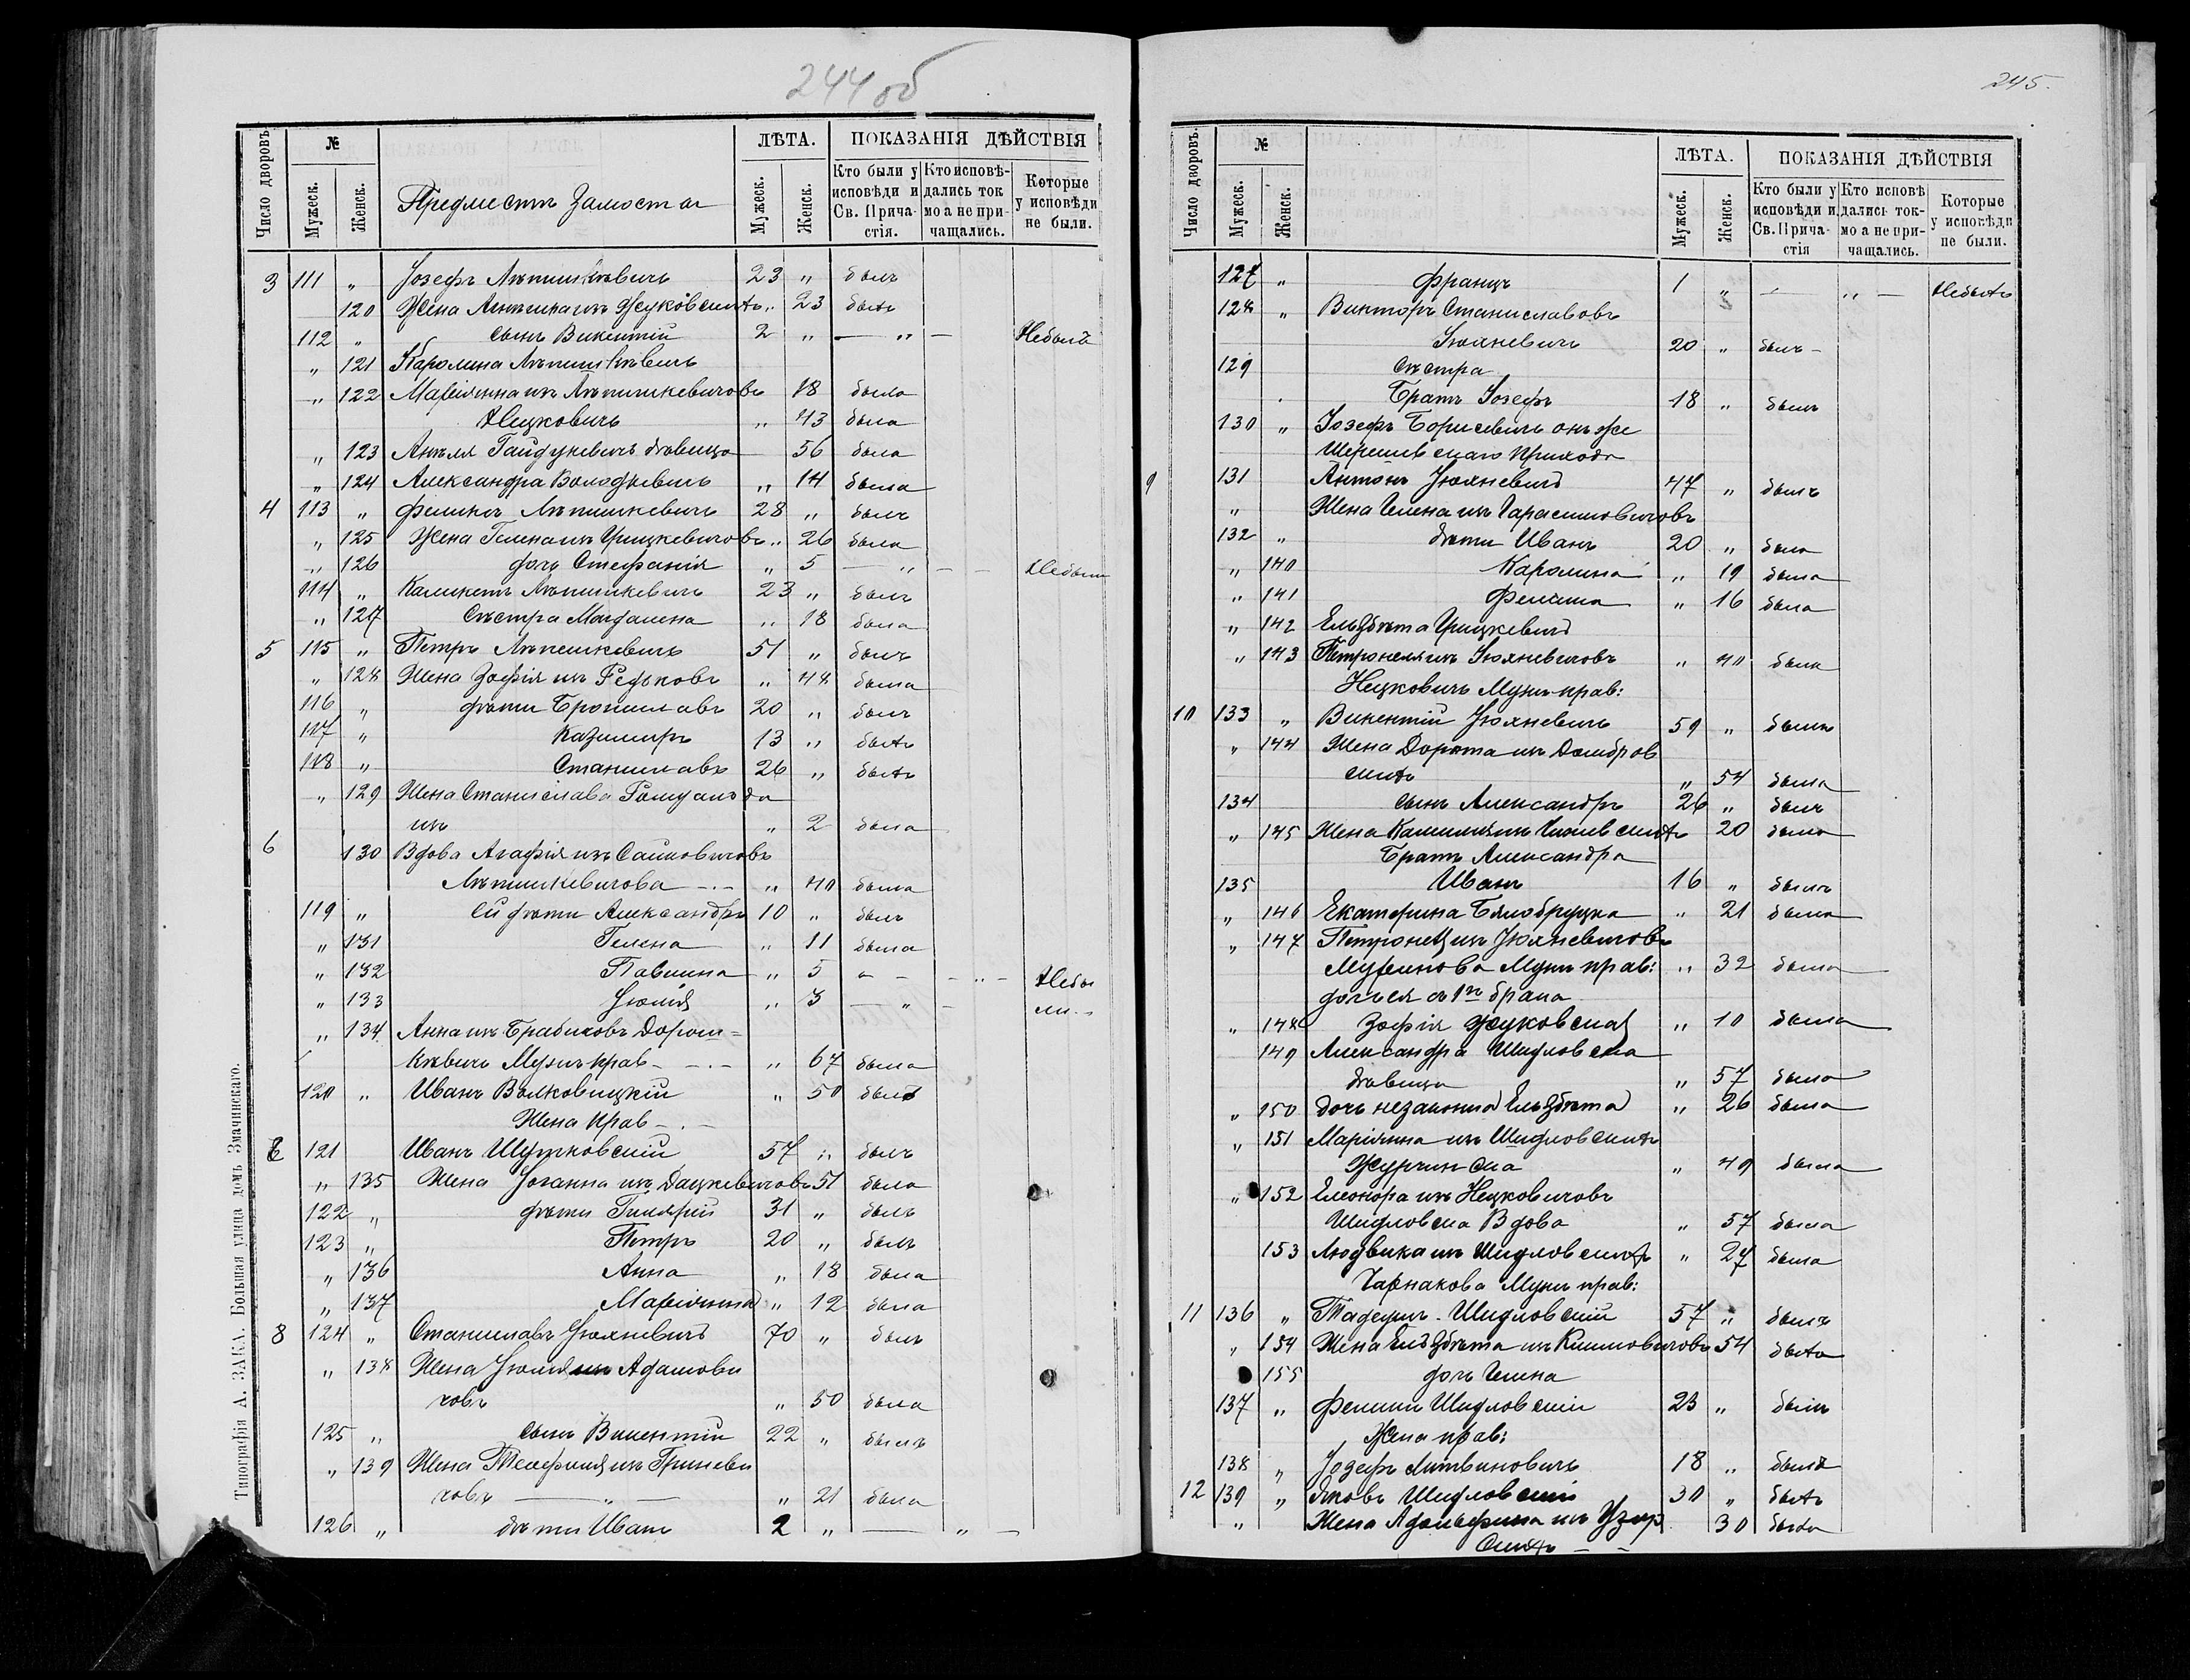 244 об
Число дворовъ.
№
Мужеск.
Женск.
Предместъ Замостье
ЛѢТА.
Мужеск.
Женск.
ПОКАЗАНІЯ ДѢЙСТВІЯ
Кто были у исповѣди и Св. Прича-стія.
Кто исповѣ-дались ток мо а не при-чащались.
Которые у исповѣди не были.
3 111 „ Іозефъ 23 „ былъ
120 Жена 23 была
112 „ сынъ Викентій 2 „ — „ — Небылъ
„ 121 Каролина
„ 122 Маріянна изъ 18 была
Нецковичъ „ 43 была
„ 123 Анеля Гайдукевичъ дѣвица 56 была
„ 124 Александра Володкевичъ „ 14 была
4 113 „ Феликсъ 28 „ былъ
„ 125 Жена Гелена изъ Грицкевичовъ „ 26 была
„ 126 дочь Стефанія „ 5 — „ — Небыли
114 „ Каликстъ 23 „ былъ
„ 127 Сестра Магдалена „ 18 была
5 115 „ Петръ 51 „ былъ
„ 128 Жена Зофія изъ Редьковъ „ 48 была
116 „ дѣти Брониславъ 20 „ былъ
117 „ Казимиръ 13 „ былъ
118 „ Станиславъ 26 „ былъ
„ 129 Жена Станислава
изъ „ 2 была
6 130 Вдова Агафія изъ Сайковичовъ
„ 40 была
119 „ Ей дѣти Александръ 10 „ былъ
„ 131 Гелена „ 11 была
„ 132 Павлина „ 5 „ — — „ — Небы
„ 133 Юлія „ 3 — „ — ли
„ 134 Анна изъ Дорош=
кевичъ Мужъ прав — „ 67 была
120 „ Иванъ Волковицкій „ 50 былъ
Жена прав —
121 Иванъ Шутковскій 57 „ былъ
„ 135 Жена Іоганна изъ Дацкевичовъ 51 была
122 „ дѣти Гилярій 31 „ былъ
123 „ Петръ 20 „ былъ
„ 136 Анна „ 18 была
„ 137 Маріянна „ 12 была
8 124 „ Станиславъ Юхневичъ 70 „ былъ
„ 138 Жена Юлія изъ Адамови
човъ „ 50 была
125 „ сынъ Викентій 22 „ былъ
„ 139 Жена Теофилія изъ Гриневи
човъ — „ — „ 21 была
126 „ дѣти Иванъ 2 „ — „ —
Типографія А. ЗАКА. Большая улица домъ Змачинскаго.
245.
Число дворовъ.
№
Мужеск.
Женск.
ЛѢТА.
Мужеск.
Женск.
ПОКАЗАНІЯ ДѢЙСТВІЯ
Кто были у исповѣди и Св. Прича-стія
Кто исповѣ дались ток-мо а не при-чащались.
Которые у исповѣди не были.
127 „ Францъ 1 „ — „ — Небылъ
128 „ Викторъ Станиславовъ
Юхневичъ 20 „ былъ —
129 Сестра
Братъ Іозефъ 18 „ былъ
130 „ Іозефъ Борисевичъ онъ же
прихода
9 131 Антонъ Юхневичъ 47 „ былъ
„ Жена Гелена изъ Гарасимовичовъ
132 „ дѣти Иванъ 20 „ была
„ 140 Каролина „ 19 была
„ 141 „ 16 была
„ 142 Ельзбѣта Грицкевичъ
„ 143 Петронеля изъ Юхневичовъ „ 40 была
Нецковичъ Мужъ прав:
10 133 „ Викентій Юхневичъ 59 „ былъ
„ 144 Жена Дорота изъ Домбров
скихъ „ 54 была
134 сынъ Александръ 26 „ былъ
„ 145 Жена 20 была
Братъ Александра
135 Иванъ 16 „ былъ
„ 146 Екатерина „ 21 была
„ 147 изъ Юхневичовъ
Мужъ прав: „ 32 была
дочь ея съ 1го брака
„ 148 Зофія Жуковская „ 10 была
149 Александра Шидловска
дѣвица „ 57 была
„ 150 дочь незаконна Ельзбѣта „ 26 была
„ 151 Маріянна изъ Шидловскихъ
„ 49 была
„ 152 Елеонора изъ Нецковичовъ
Шидловска Вдова „ 57 была
153 Людвика изъ Шидловскихъ „ 27 была
Мужъ прав:
11 136 „ Тадеушъ Шидловскій 57 „ былъ
„ 154 Жена Ельзбѣта изъ Климовичовъ 54 была
155 дочь Гелена
137 „ Шидловскій 23 „ былъ
Жена прав:
138 „ Іозефъ Литвиновичъ 18 „ былъ
12 139 „ Яковъ Шидловскій 30 „ былъ
„ Жена изъ 30 была
скихъ — —